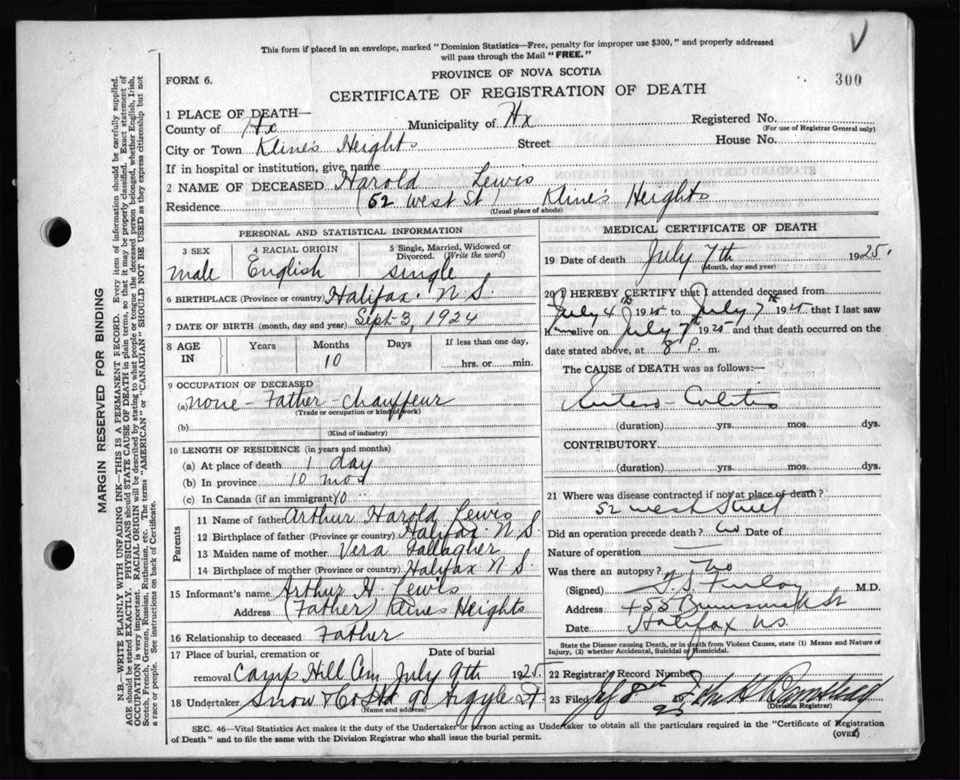 This form if placed in an envelope, marked "Dominion Statistics—Free, penalty for improper use $300," and properly addressed
will pass through the Mail "FREE."
V
300
FORM 6.
PROVINCE OF NOVA SCOTIA
CERTIFICATE OF REGISTRATION OF DEATH
1 PLACE OF DEATH—
County of Hx Municipality of Hx Registered No.
(For use of Registrar General only)
City or Town Klines Heights Street House No.
If in hospital or institution, give name
2 NAME OF DECEASED Harold Lewis
Residence (52 West St) Klines Heights
(Usual place of abode)
PERSONAL AND STATISTICAL INFORMATION
3 SEX 4 RACIAL ORIGIN 5 Single, Married, Widowed or
Divorced. (Write the word)
male English single
6 BIRTHPLACE (Province or country) Halifax. N.S.
7 DATE OF BIRTH (month, day and year) Sept-3, 1924
8 AGE IN Years Months Days If less than one day,
10 hrs. or min.
9 OCCUPATION OF DECEASED
(a) none - Father - chauffeur
(Trade or occupation or kind of work)
(b)
(Kind of industry)
10 LENGTH OF RESIDENCE (in years and months)
(a) At place of death 1 day
(b) In province 10 mos
(c) In Canada (if an immigrant) 10
Parents
11 Name of father Arthur Harold Lewis
12 Birthplace of father (Province or country) Halifax N.S.
13 Maiden name of mother Vera Gallagher
14 Birthplace of mother (Province or country) Halifax N S
15 Informant's name Arthur H. Lewis
Address (Father) Klines Heights
16 Relationship to deceased Father
17 Place of burial, cremation or removal Date of burial
Camp Hill Cem July 9th 1925.
18 Undertaker Snow & Co Ltd 90 Argyle St
(Name and address)
MEDICAL CERTIFICATE OF DEATH
19 Date of death July 7th 1925.
(Month, day and year)
20 I HEREBY CERTIFY that I attended deceased from
July 4th 1925 to July 7th 1925 that I last saw
him alive on July 7th 1925 and that death occurred on the
date stated above, at 8 P. m.
The CAUSE of DEATH was as follows:—
Entero-Colitis
(duration) yrs. mos. dys.
CONTRIBUTORY
(duration) yrs. mos. dys.
21 Where was disease contracted if not at place of death?
52 West Street
Did an operation precede death? no Date of
Nature of operation —
Was there an autopsy? no
(Signed) Finlay M.D.
Address 455 Brunswick St
Date Halifax NS.
State the Disease causing Death, or in death from Violent Causes, state (1) Means and Nature of
Injury, (2) whether Accidental, Suicidal or Homicidal.
22 Registrar's Record Number
23 Filed July 8th 1925 John H
(Division Registrar)
SEC. 46—Vital Statistics Act makes it the duty of the Undertaker or person acting as Undertaker to obtain all the particulars required in the "Certificate of Registration
of Death" and to file the same with the Division Registrar who shall issue the burial permit.
(OVER)
MARGIN RESERVED FOR BINDING
N.B.—WRITE PLAINLY WITH UNFADING INK—THIS IS A PERMANENT RECORD. Every item of information should be carefully supplied.
AGE should be stated EXACTLY. PHYSICIANS should STATE CAUSE OF DEATH in plain terms, so that it may be properly classified. Exact statement of
OCCUPATION is very important. RACIAL ORIGIN will be described by stating to what people or tongue the deceased person belonged, whether English, Irish,
Scotch, French, German, Russian, Ruthenian, etc. The terms "AMERICAN" or "CANADIAN" SHOULD NOT BE USED as they express citizenship but not
a race or people. See instructions on back of Certificate.